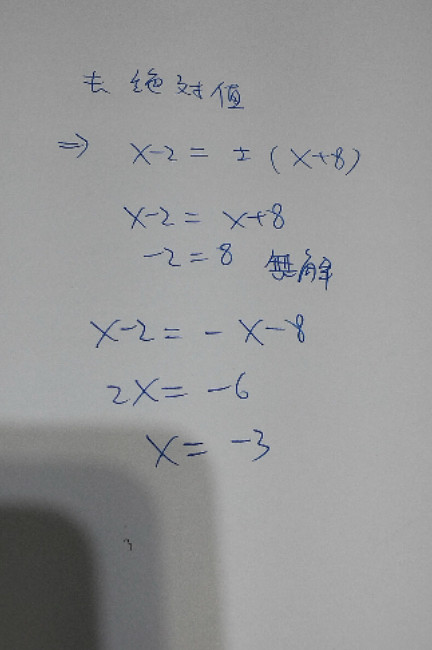 去 絕对值
⇒ x-2 = ± (x+8)
x-2 = x+8
-2 = 8 無解
x-2 = -x-8
2x = -6
x = -3